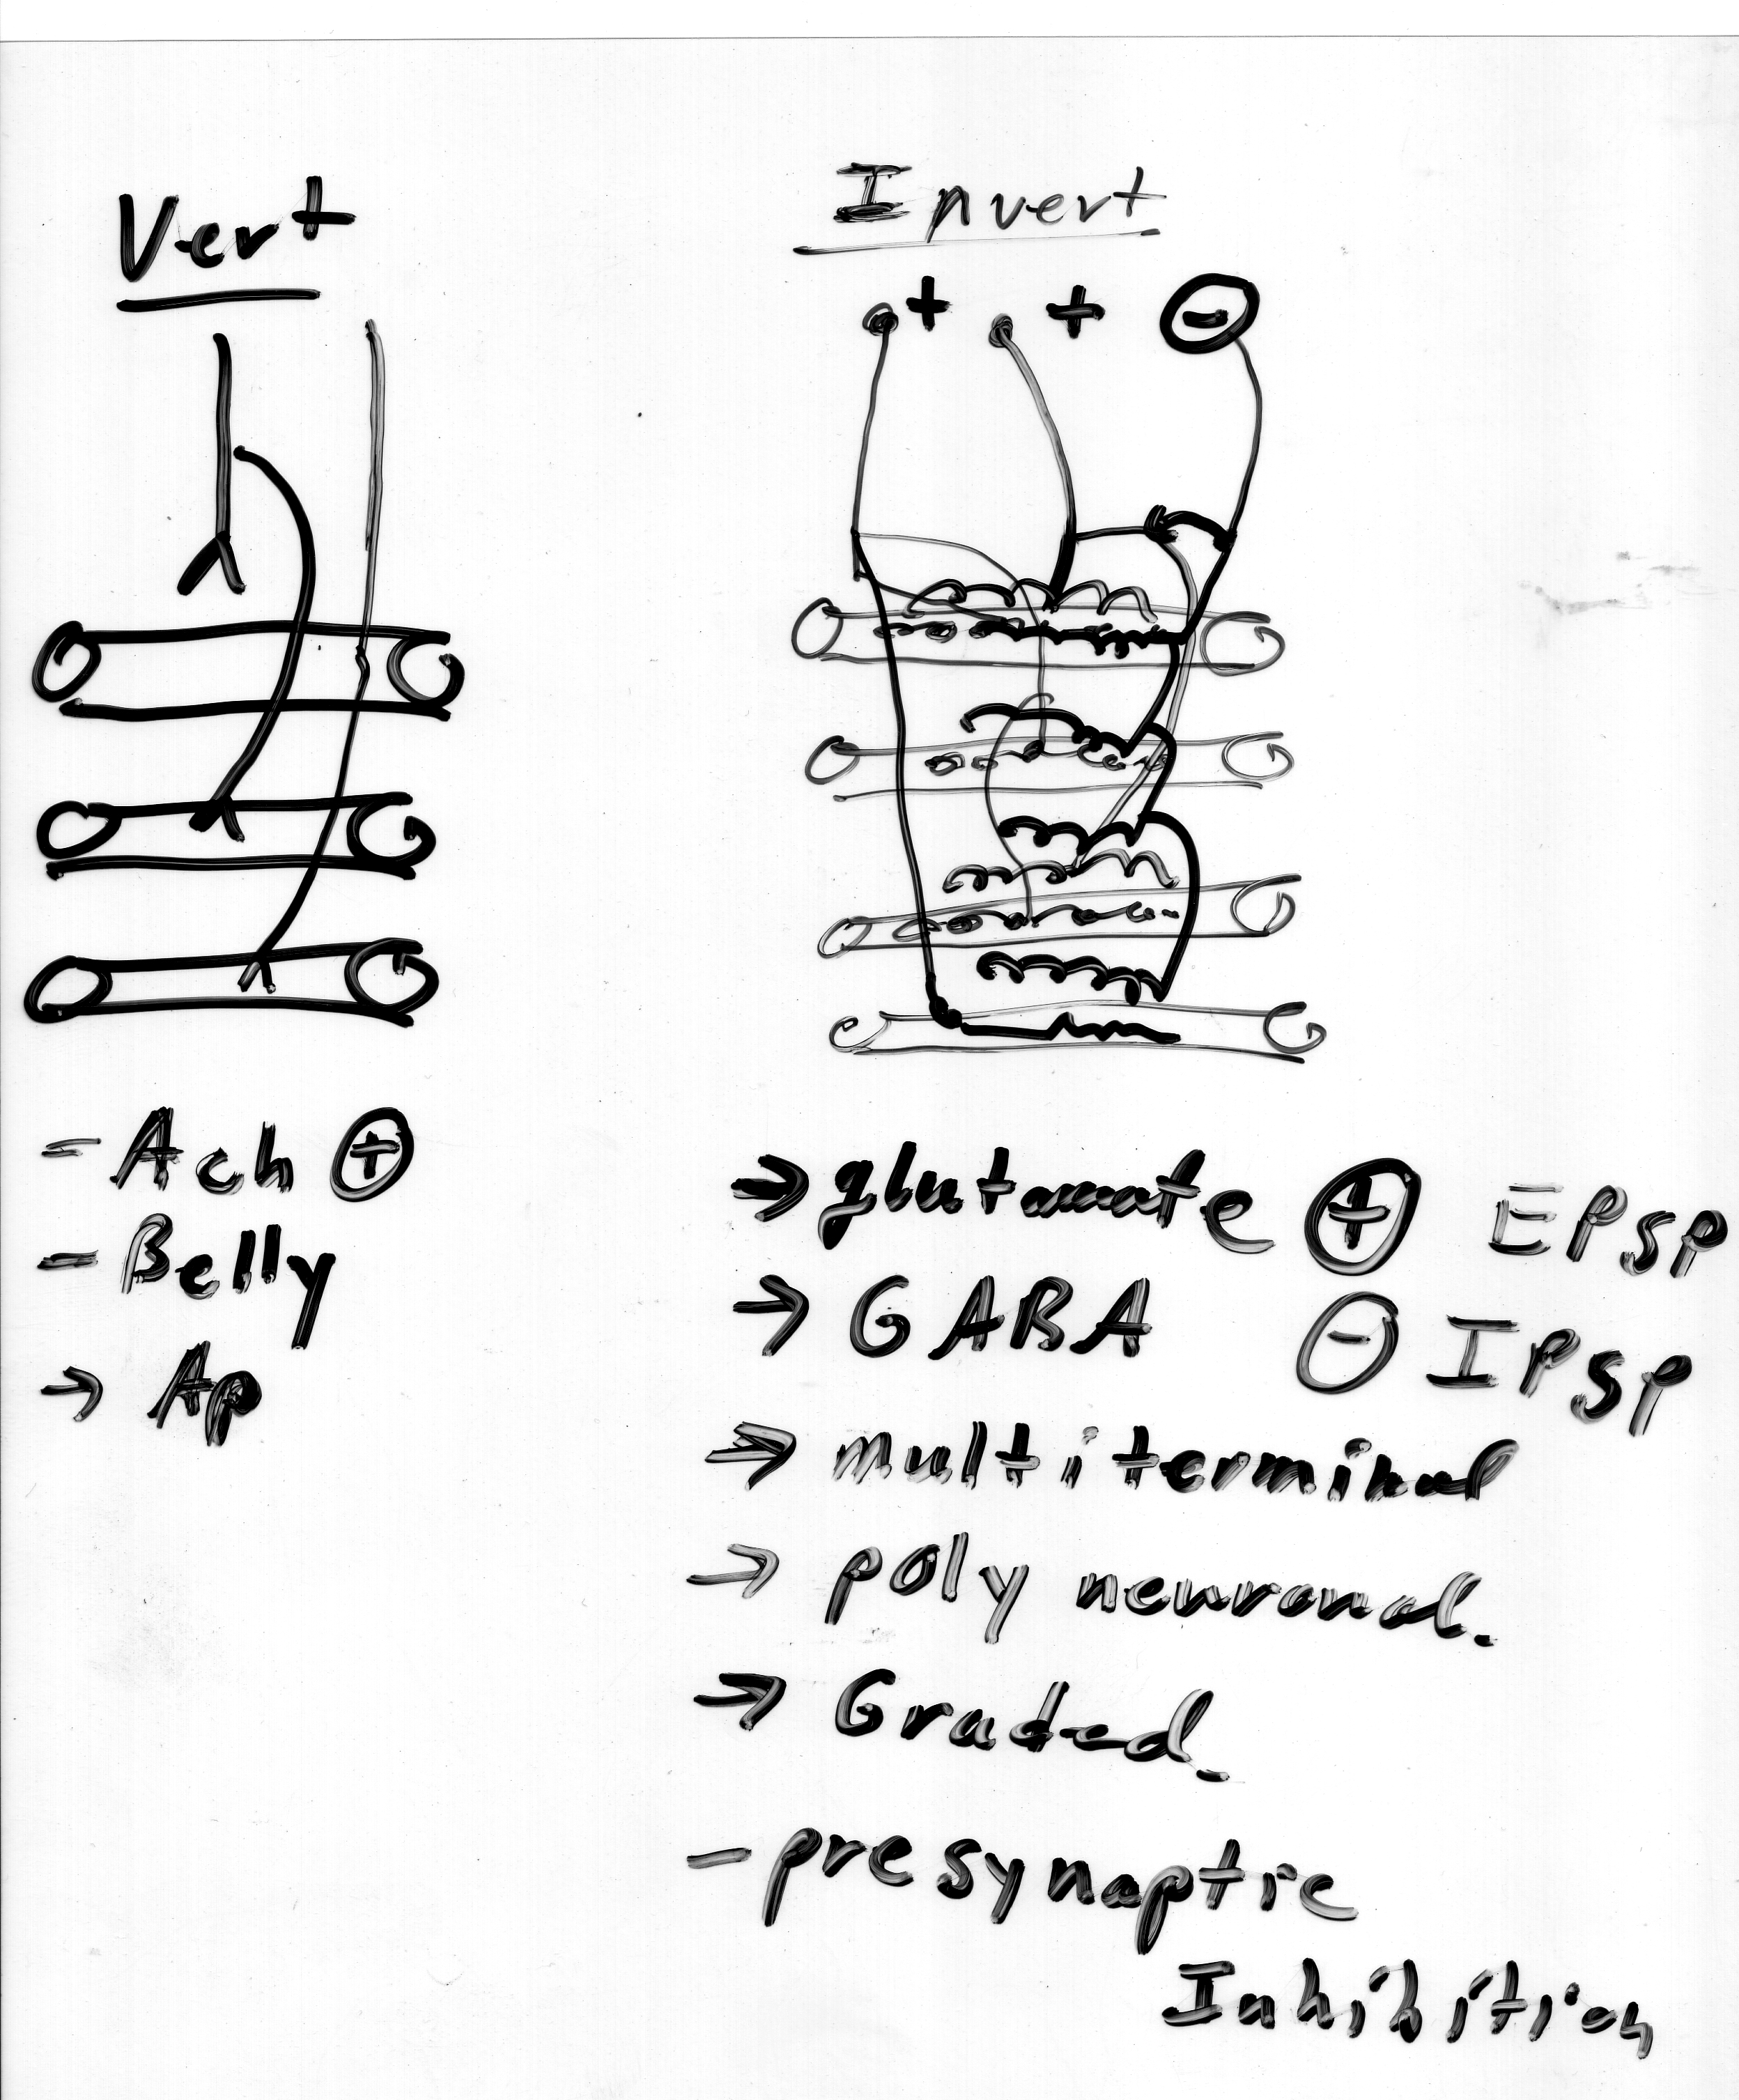 Vert
- Ach ⊕
- Belly
→ Ap
Invert
+ + ⊖
→ glutamate ⊕ EPSP
→ GABA ⊖ IPSP
→ multiterminal
→ poly neuronal.
→ Graded.
- presynaptic
Inhibition